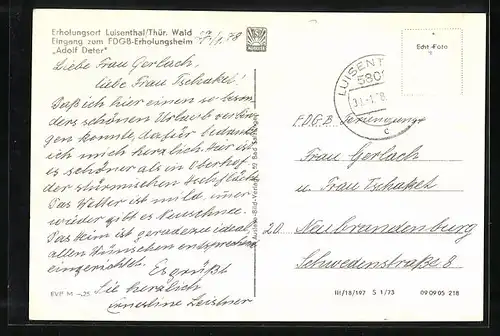 Erholungsort Luisenthal/Thür. Wald
Eingang zum FDGB-Erholungsheim
„Adolf Deter"
Liebe Frau Gerlach,
liebe Frau Tschakel!
Daß ich hier einen so beson-
ders schönen Urlaub verbrin-
gen konnte, dafür bedanke
ich mich herzlich. Hier ist
es schöner als in Oberhof
der stürmischen
Das Wetter ist mild, immer
wieder gibt es Neuschnee.
Das Heim ist geradezu ideal,
allen Wünschen entsprechend
eingerichtet. Es grüßt
Sie herzlich
Ernestine Leistner
EVP M –,25
Auslese-Bild-Verlag 82 Bad Salzungen
LUISENT
580
Echt-Foto
F.D.G.B.
Frau Gerlach
u. Frau Tschakel
20 Neubrandenburg
Schwedenstraße 8
III/18/197 S 1/73 09 09 05 218